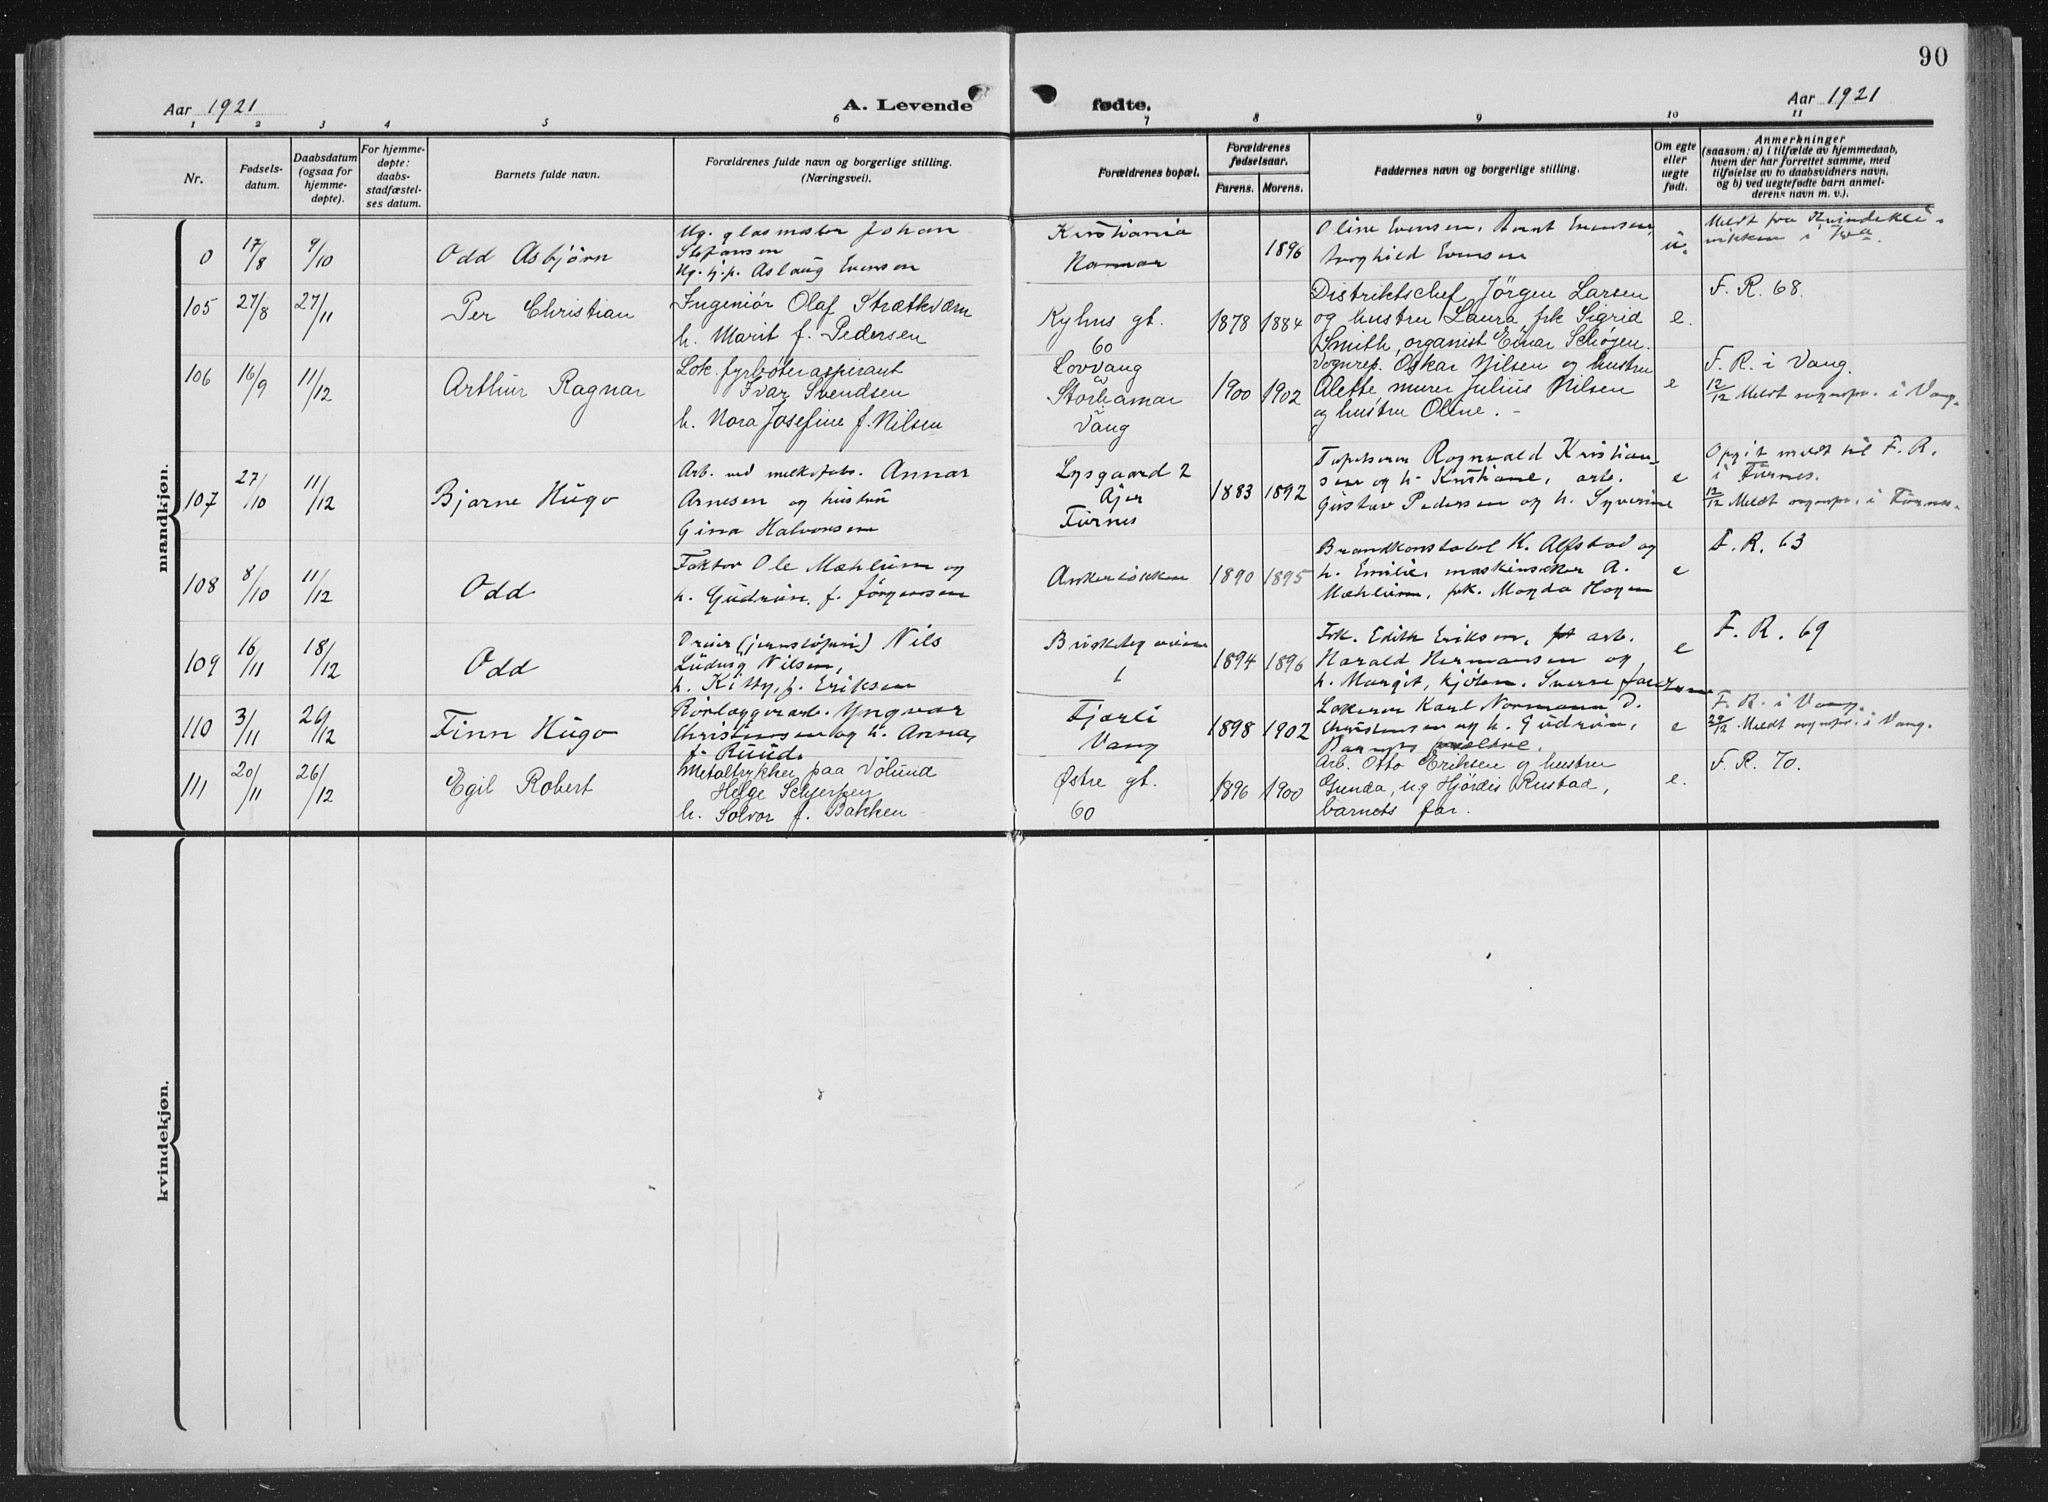 90
Aar 1921
A. Levende
fødte.
Aar 1921
1 2 3 4 5 6 7 8 9 10 11
Nr.
Fødsels-
datum.
Daabsdatum
(ogsaa for
hjemme-
døpte).
For hjemme-
døpte:
daabs-
stadfæstel-
ses datum.
Barnets fulde navn.
Forældrenes fulde navn og borgerlige stilling.
(Næringsvei).
Forældrenes bopæl.
Forældrenes
fødselsaar.
Farens. Morens.
Faddernes navn og borgerlige stilling.
Om egte
eller
uegte
født.
Anmerkninger
(saasom: a) i tilfælde av hjemmedaab,
hvem der har forrettet samme, med
tilføielse av to daabsvidners navn,
og b) ved uegtefødte barn anmel-
derens navn m. v.).
mandkjøn.
0
17/8
9/10
Odd Asbjørn
Ug. glasmester Johan
Stefansen
Ug. tj.p. Aslaug Evensen
Kristiania
Hamar
1896
Oline Evensen, Bernt Evensen,
Borghild Evensen
u.
Meldt fra Kvindekli-
nikken i Kra
105
27/8
27/11
Per Christian
Ingeniør Olaf Strætkværn
h. Marit f. Pedersen
Kyhns gt.
60
1878
1884
Distriktschef Jörgen Larsen
og hustru Laura, frk Sigrid
Smith, organist Einar Schøjen.
e.
F. R. 68.
106
16/9
11/12
Arthur Ragnar
Lok. fyrbøteraspirant
Ivar Svendsen
h. Nora Josefine f. Nilsen
Lovvang
av
Storhamar
i
Vang
1900
1902
Vognrep. Oskar Nilsen og hustru
Alette, murer Julius Nilsen
og hustru Oline. -
e
F. R. i Vang.
12/12 Meldt sognepr. i Vang.
107
27/10
11/12
Bjarne Hugo
Arb. ved melkefabr. Annar
Arnesen og hustru
Gina Halvorsen
Lysgaard 2
Ajer
Furnes
1883
1892
Tapetserer Rognvald Kristian-
sen og h. Kristiane, arb.
Gustav Pedersen og h. Syverine
e
Opgit meldt til F. R.
i Furnes.
12/12 Meldt sognepr. i Furnes.
108
8/10
11/12
Odd
Faktor Ole Mæhlum og
h. Gudrun, f. Jörgensen
Ankerløkken
1890
1895
Brandkonstabel K. Alfstad og
h. Emilie, maskinsetter A.
Mæhlum, frk. Magda Hagen
e
F. R. 63
109
16/11
18/12
Odd
Dreier (jernstöperi) Nils
Ludvig Nilsen,
h. Kitty, f. Eriksen
1
1894
1896
Frk. Edith Eriksen, arb.
Harald Hermansen og
h. Margit, kjøbm. Sverre
e
F. R. 69
110
3/11
26/12
Finn Hugo
Rörlæggerarb. Yngvar
Christensen og h. Anna,
f. Ruud.
Fjærli
Vang
1898
1902
Lakerer Karl Normann D.
Christensen og h. Gudrun,
Barnets forældre.
e
F. R. i Vang.
29/12 Meldt sognepr. i Vang.
111
20/11
26/12
Egil Robert
Metaltrykker paa Vølund
Helge Schjerpen
h. Solvor f. Bakken
Østre gt.
60
1896
1900
Arb. Otto Eriksen og hustru
Gunda, ug Hjördis Rustad,
barnets far.
e.
F. R. 70.
kvindekjøn.